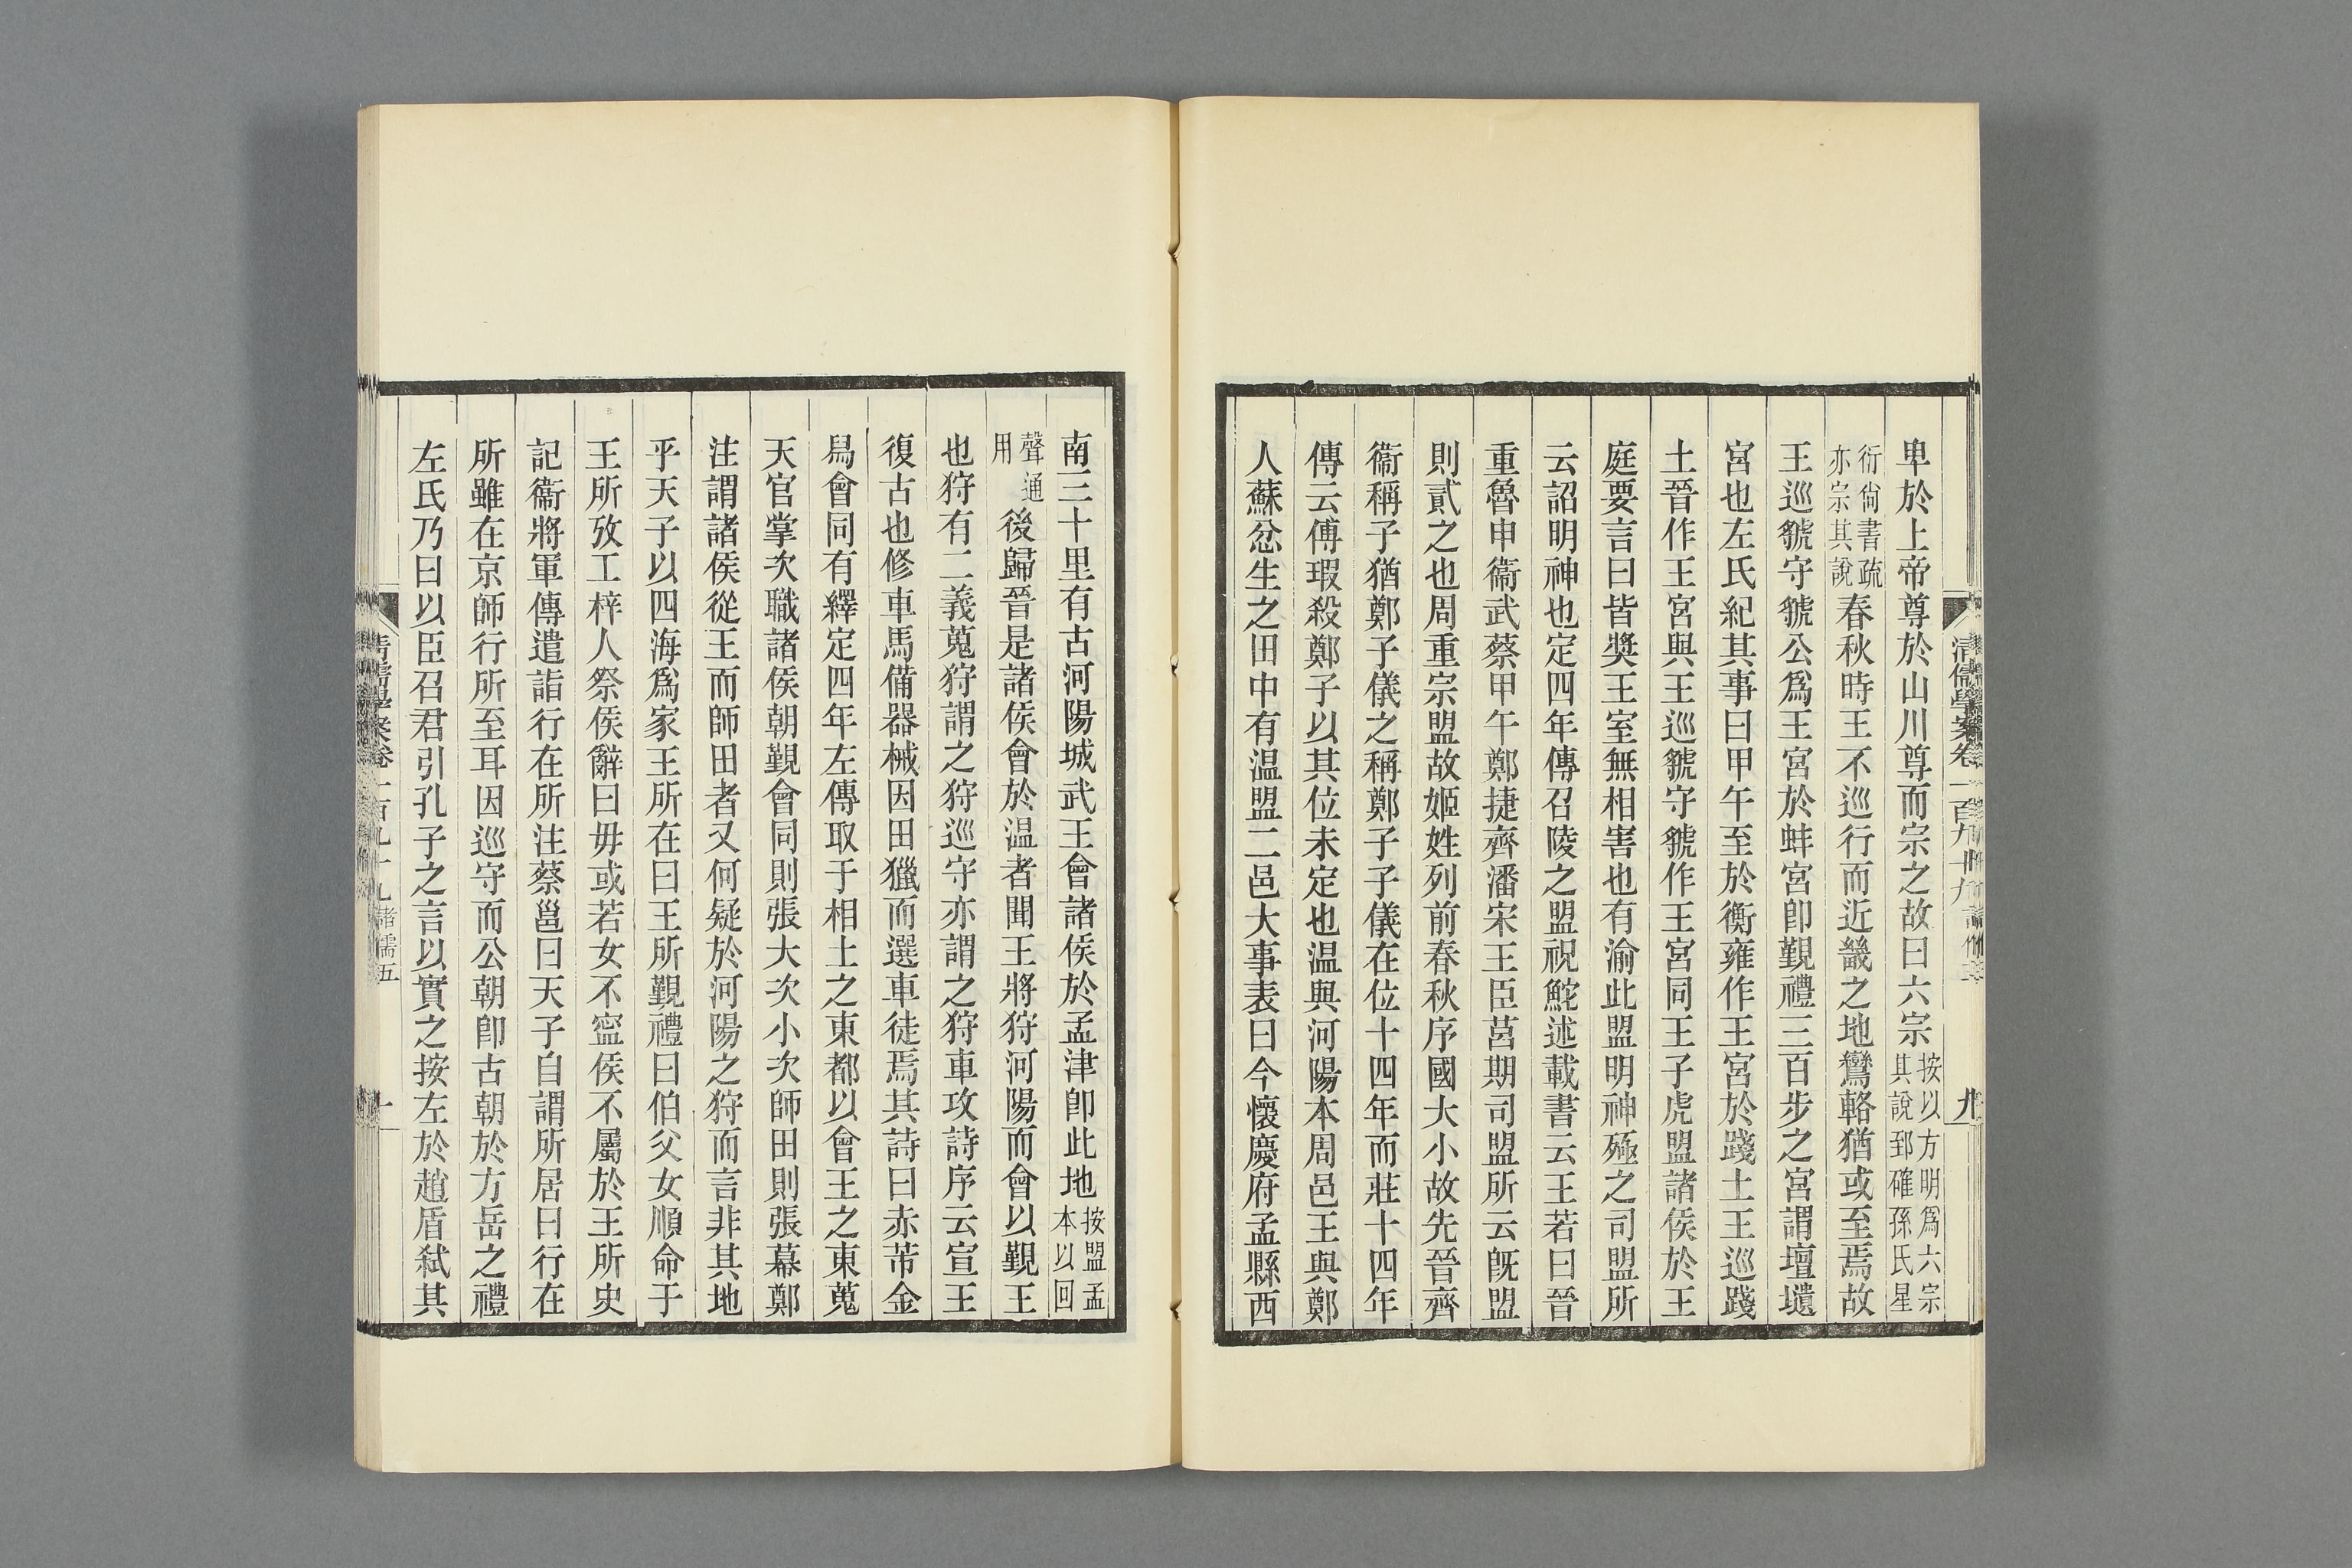 清儒學案卷一百九十九
九
卑於上帝尊於山川尊而宗之故曰六宗按以方明爲六宗其說郅確孫氏星
衍尙書疏亦宗其說春秋時王不巡行而近畿之地鸞輅猶或至焉故
王巡虢守虢公爲王宮於蚌宮卽覲禮三百步之宮謂壇壝
宮也左氏紀其事曰甲午至於衡雍作王宮於踐土王巡踐
土晉作王宮與王巡虢守虢作王宮同王子虎盟諸侯於王
庭要言曰皆奬王室無相害也有渝此盟明神殛之司盟所
云詔明神也定四年傳召陵之盟祝鮀述載書云王若曰晉
重魯申衞武蔡甲午鄭捷齊潘宋王臣莒期司盟所云旣盟
則貳之也周重宗盟故姬姓列前春秋序國大小故先晉齊
衞稱子猶鄭子儀之稱鄭子子儀在位十四年而莊十四年
傳云傅瑕殺鄭子以其位未定也温與河陽本周邑王與鄭
人蘇忿生之田中有温盟二邑大事表曰今懷慶府孟縣西
南三十里有古河陽城武王會諸侯於孟津卽此地按盟孟本以回
聲通用後歸晉是諸侯會於温者聞王將狩河陽而會以覲王
也狩有二義蒐狩謂之狩巡守亦謂之狩車攻詩序云宣王
復古也修車馬備器械因田獵而選車徒焉其詩曰赤芾金
舄會同有繹定四年左傳取于相土之東都以會王之東蒐
天官掌次職諸侯朝覲會同則張大次小次師田則張幕鄭
注謂諸侯從王而師田者又何疑於河陽之狩而言非其地
乎天子以四海爲家王所在曰王所覲禮曰伯父女順命于
王所攷工梓人祭侯辭曰毋或若女不寍侯不屬於王所史
記衞將軍傳遣詣行在所注蔡邕曰天子自謂所居曰行在
所雖在京師行所至耳因巡守而公朝卽古朝於方岳之禮
左氏乃曰以臣召君引孔子之言以實之按左於趙盾弑其
清儒學案卷一百九十九 諸儒五
十